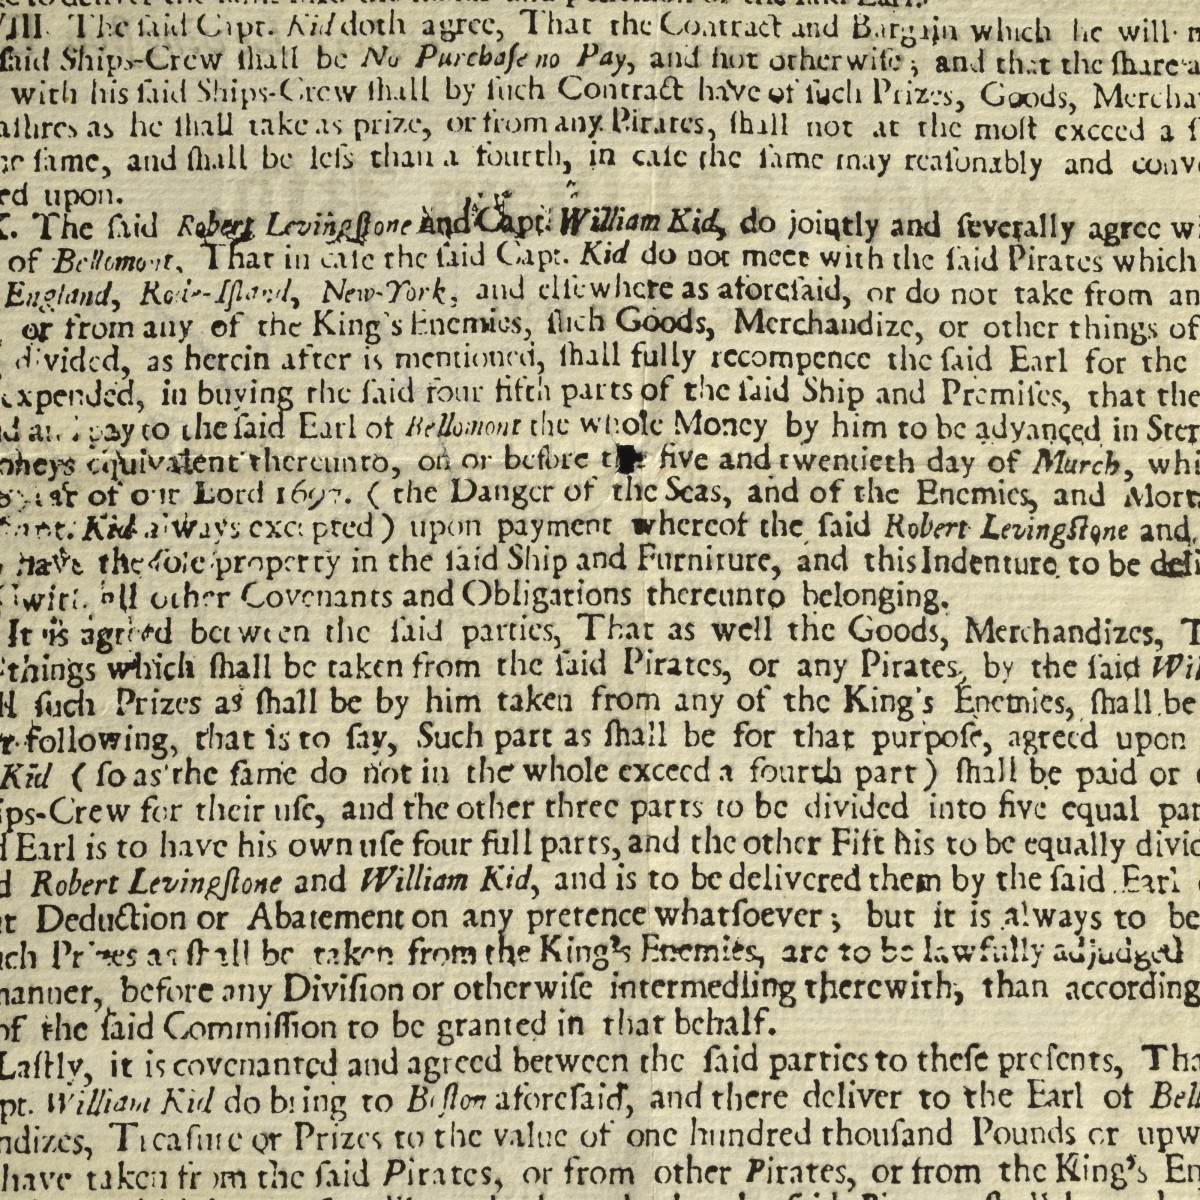 VIII. The ſaid Capt. Kid doth agree, That the Contract and Bargain which he will
ſaid Ships-Crew ſhall be No Purchaſe no Pay, and not otherwiſe; and that the ſhare
with his ſaid Ships-Crew ſhall by ſuch Contract have of ſuch Prizes, Goods, Mercha
aſures as he ſhall take as prize, or from any Pirates, ſhall not at the moſt exceed a
ſame, and ſhall be leſs than a fourth, in caſe the ſame may reaſonably and conve
ed upon.
The ſaid Robert Levingſtone and Capt. William Kid, do jointly and ſeverally agree wi
of Bellomont, That in caſe the ſaid Capt. Kid do not meet with the ſaid Pirates which
England, Rode-Iſland, New-York, and elſewhere as aforeſaid, or do not take from an
or from any of the King's Enemies, ſuch Goods, Merchandize, or other things of
divided, as herein after is mentioned, ſhall fully recompence the ſaid Earl for the
expended, in buying the ſaid four fifth parts of the ſaid Ship and Premiſes, that the
pay to the ſaid Earl of Bellomont the whole Money by him to be advanced in Ster
equivalent thereunto, on or before the five and twentieth day of March, whi
of our Lord 1697. ( the Danger of the Seas, and of the Enemies, and Mort
Capt. Kid always excepted ) upon payment whereof the ſaid Robert Levingſtone and
have the ſole property in the ſaid Ship and Furniture, and this Indenture to be deli
with all other Covenants and Obligations thereunto belonging.
It is agreed between the ſaid parties, That as well the Goods, Merchandizes, T
things which ſhall be taken from the ſaid Pirates, or any Pirates, by the ſaid Wil
ſuch Prizes as ſhall be by him taken from any of the King's Enemies, ſhall be
following, that is to ſay, Such part as ſhall be for that purpoſe, agreed upon
Kid ( ſo as the ſame do not in the whole exceed a fourth part ) ſhall be paid or
ips-Crew for their uſe, and the other three parts to be divided into five equal par
Earl is to have his own uſe four full parts, and the other Fift his to be equally divid
d Robert Levingſtone and William Kid, and is to be delivered them by the ſaid Earl
t Deduction or Abatement on any pretence whatſoever; but it is always to be
uch Prizes as ſhall be taken from the King's Enemies, are to be lawfully adjudged
manner, before any Diviſion or otherwiſe intermedling therewith, than according
of the ſaid Commiſſion to be granted in that behalf.
Laſtly, it is covenanted and agreed between the ſaid parties to theſe preſents, Tha
pt. William Kid do bring to Boſton aforeſaid, and there deliver to the Earl of Bell
ndizes, Treaſure or Prizes to the value of one hundred thouſand Pounds or upw
have taken from the ſaid Pirates, or from other Pirates, or from the King's En